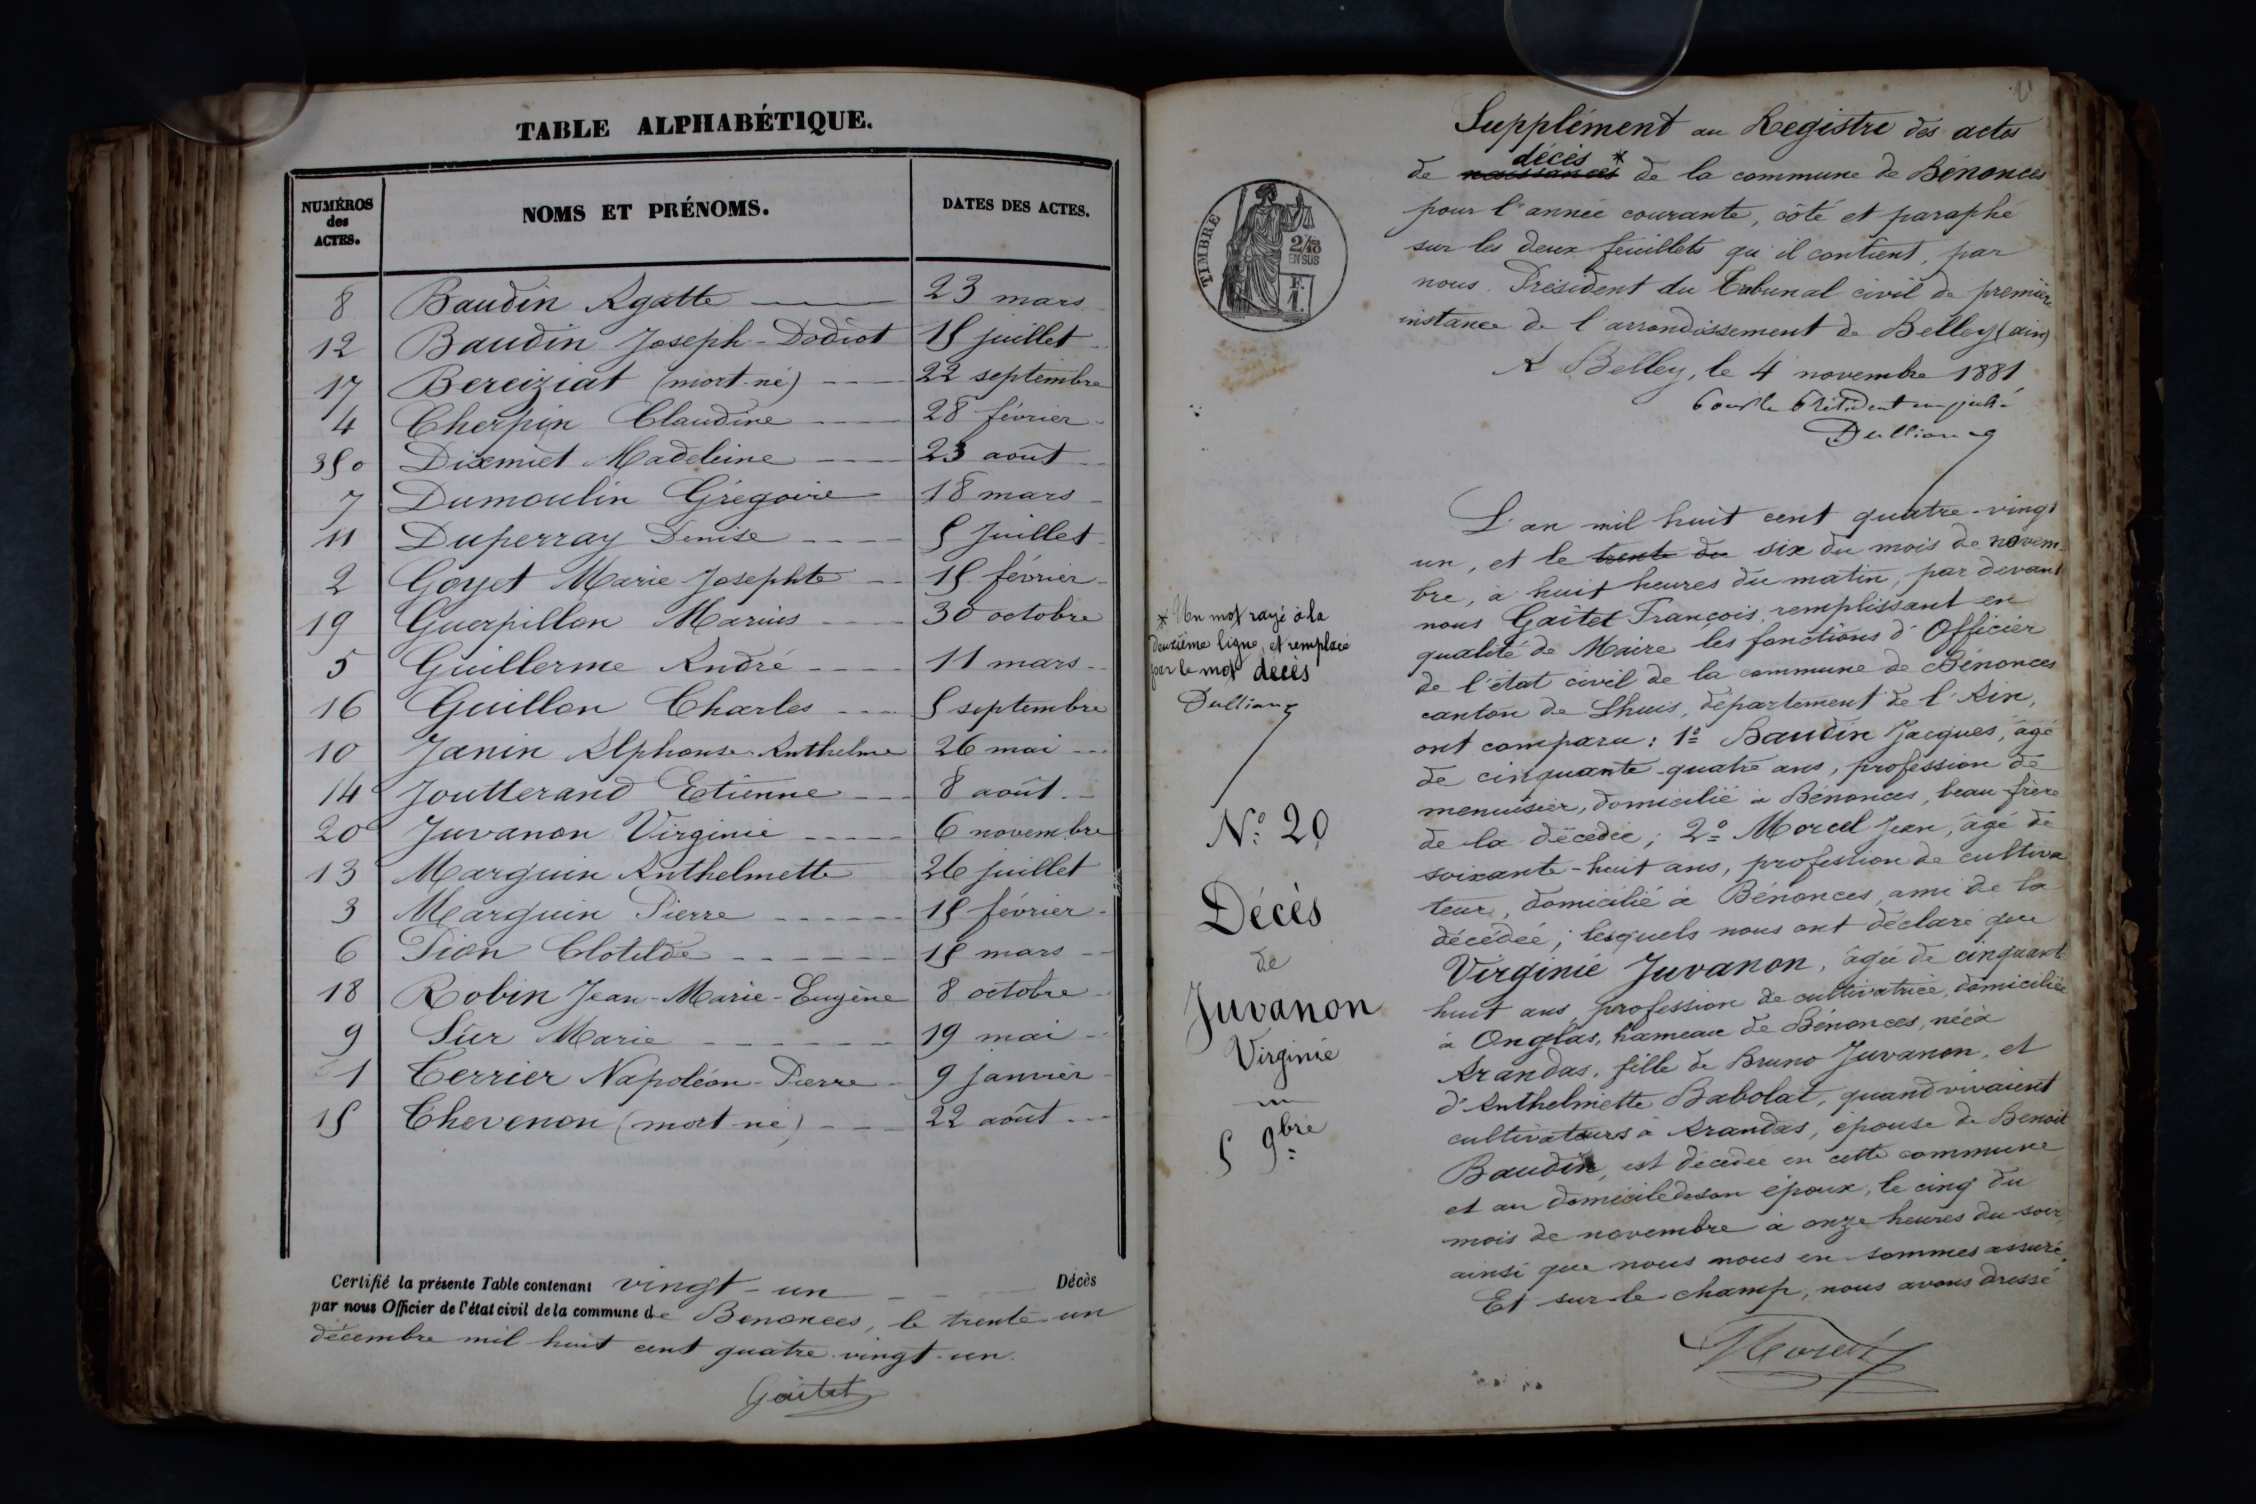 TABLE ALPHABÉTIQUE.
NUMÉROS des ACTES. NOMS ET PRÉNOMS. DATES DES ACTES.
8 Baudin Agatte 23 mars
12 Baudin Joseph-Dodiot 15 juillet
17 Bereiziat (mort-né) 22 septembre
4 Cherpin Claudine 28 février
Diemiet Madeleine 23 août
7 Dumoulin Grégoire 18 mars
11 Duperray Denise 5 Juillet
2 Goyet Marie Josephte 15 février
19 Guerpillon Marius 30 octobre
5 Guillerme André 11 mars
16 Guillon Charles 5 septembre
10 Janin Alphonse Anthelme 26 mai
14 Joutterand Etienne 8 août
20 Juvanon Virginie 6 novembre
13 Marguin Anthelmette 26 juillet
3 Marguin Pierre 15 février
6 Pion Clotilde 15 mars
18 Robin Jean-Marie-Eugène 8 octobre
9 Sûr Marie 19 mai
1 Terrier Napoléon-Pierre 9 janvier
15 Thevenon (mort-né) 22 août
Certifié la présente Table contenant vingt-un Décès
par nous Officier de l'état civil de la commune de Benonces, le trente-un
décembre mil huit cent quatre vingt-un.
Gaîtet
Supplément au Registre des actes
décès *
de naissances de la commune de Bénonces
pour l'année courante, côté et paraphé
sur les deux feuillets qu'il contient, par
nous Président du Tribunal civil de première
instance de l'arrondissement de Belley (ain)
A Belley, le 4 novembre 1881
Pour le Président empêché
Dullian
TIMBRE
2/10
EN SUS
F.
1.
* Un mot rayé à la
deuxième ligne, et remplacé
par le mot décès
Dullian
N° 20
Décès
de
Juvanon
Virginie
5 9bre
L'an mil huit cent quatre-vingt
un, et le trente du six du mois de novem-
bre, à huit heures du matin, par devant
nous Gaîtet François, remplissant en
qualité de Maire les fonctions d'Officier
de l'état civil de la commune de Bénonces
canton de Lhuis, département de l'Ain,
ont comparu : 1° Baudin Jacques, âgé
de cinquante-quatre ans, profession de
menuisier, domicilié à Bénonces, beau-frère
de la décédée ; 2° Morcel Jean, âgé de
soixante-huit ans, profession de cultiva
teur, domicilié à Bénonces, ami de la
décédée ; lesquels nous ont déclaré que
Virginie Juvanon, âgée de cinquante
huit ans, profession de cultivatrice, domiciliée
à Onglas, hameau de Bénonces, née à
Arandas, fille de Bruno Juvanon, et
d'Anthelmette Babolat, quand vivaient
cultivateurs à Arandas, épouse de Benoit
Baudin, est décédée en cette commune
et au domicile de son époux, le cinq du
mois de novembre à onze heures du soir,
ainsi que nous nous en sommes assuré.
Et sur-le-champ, nous avons dressé